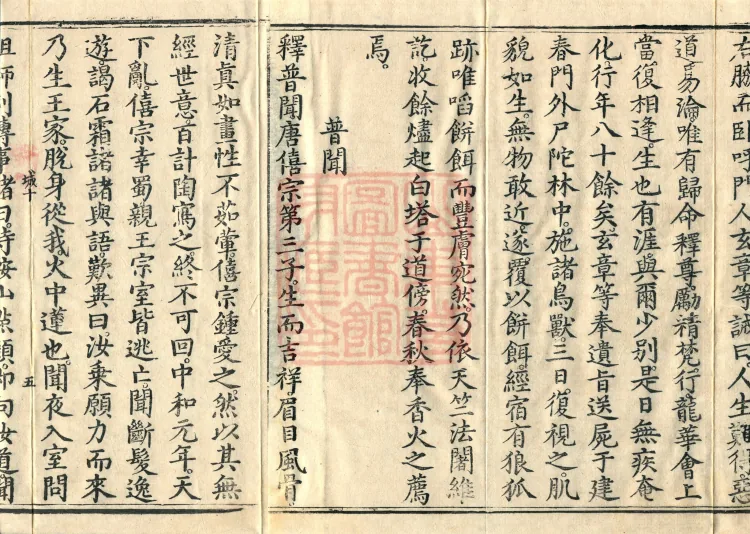 右脇而卧呼門人玄章等誡曰。人生難得惑
道易淪唯有歸命釋尊。勵精梵行龍華會上
當復相逢。生也有涯與爾少別。是日無疾奄
化行年八十餘矣。玄章等奉遺旨送屍于建
春門外尸陀林中。施諸鳥獸。三日復視之。肌
貌如生。無物敢近。遂覆以餅餌。經宿有狼狐
跡唯啗餅餌。而豐膚宛然。乃依天竺法闍維
訖。收餘燼起白塔于道傍。春秋奉香火之薦
焉。
普聞
釋普聞唐僖宗第三子。生而吉祥。眉目風骨。
清真如畫性不茹葷。僖宗鍾愛之。然以其無
經世意。百計陶寫之。終不可回。中和元年。天
下亂。僖宗幸蜀。親王宗室皆逃亡。聞斷髮逸
遊。謁石霜諸。諸與語。歎異曰。汝乘願力而來
乃生王家。脫身從我。火中蓮也。聞夜入室問
城十 五
祖師別傳事。諸曰。待案山點頭。即向汝道。聞